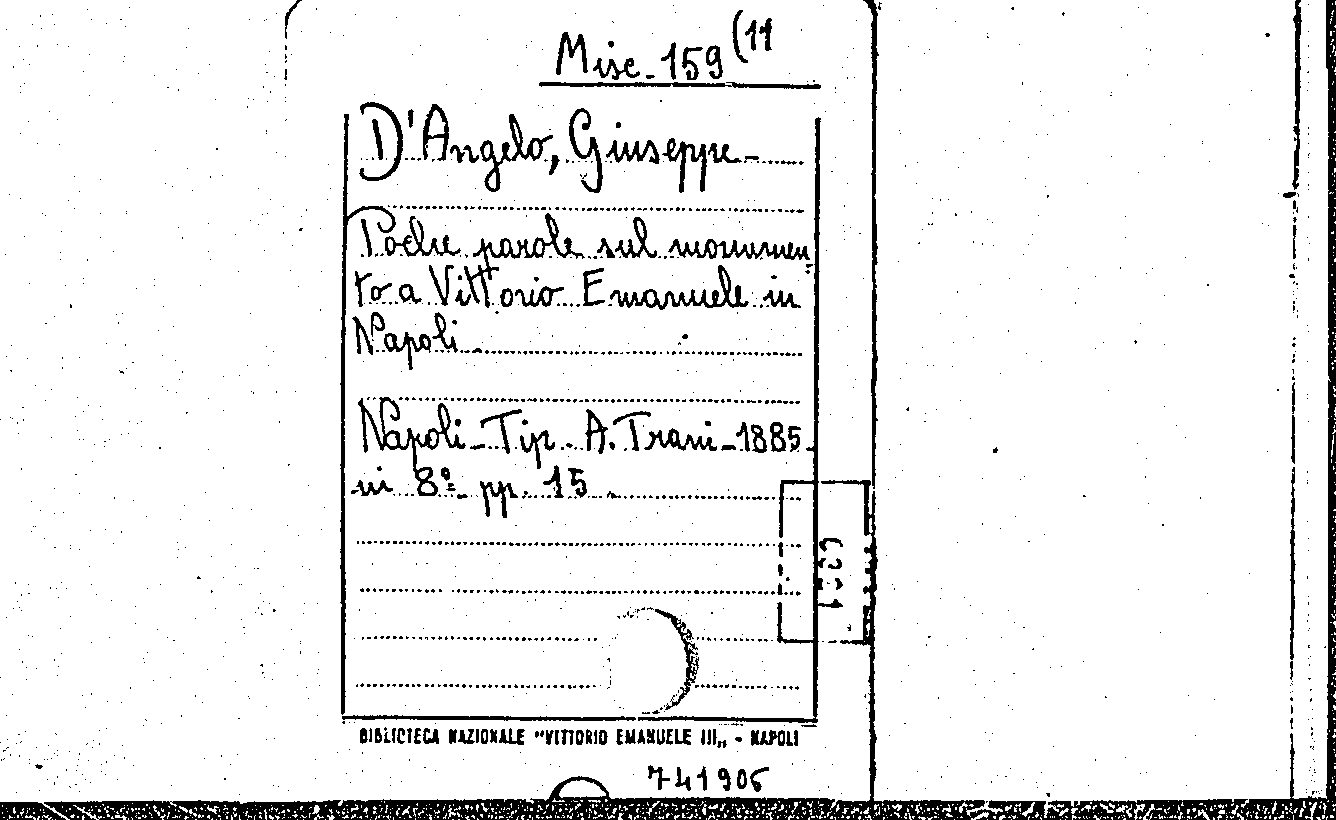 Misc. 159 (11
D'Angelo, Giuseppe -
Poche parole sul monumen
to a Vittorio Emanuele in
Napoli.
Napoli - Tip. A. Trani - 1885.
in 8º pp. 15.
BIBLIOTECA NAZIONALE "VITTORIO EMANUELE III„ - NAPOLI
741906